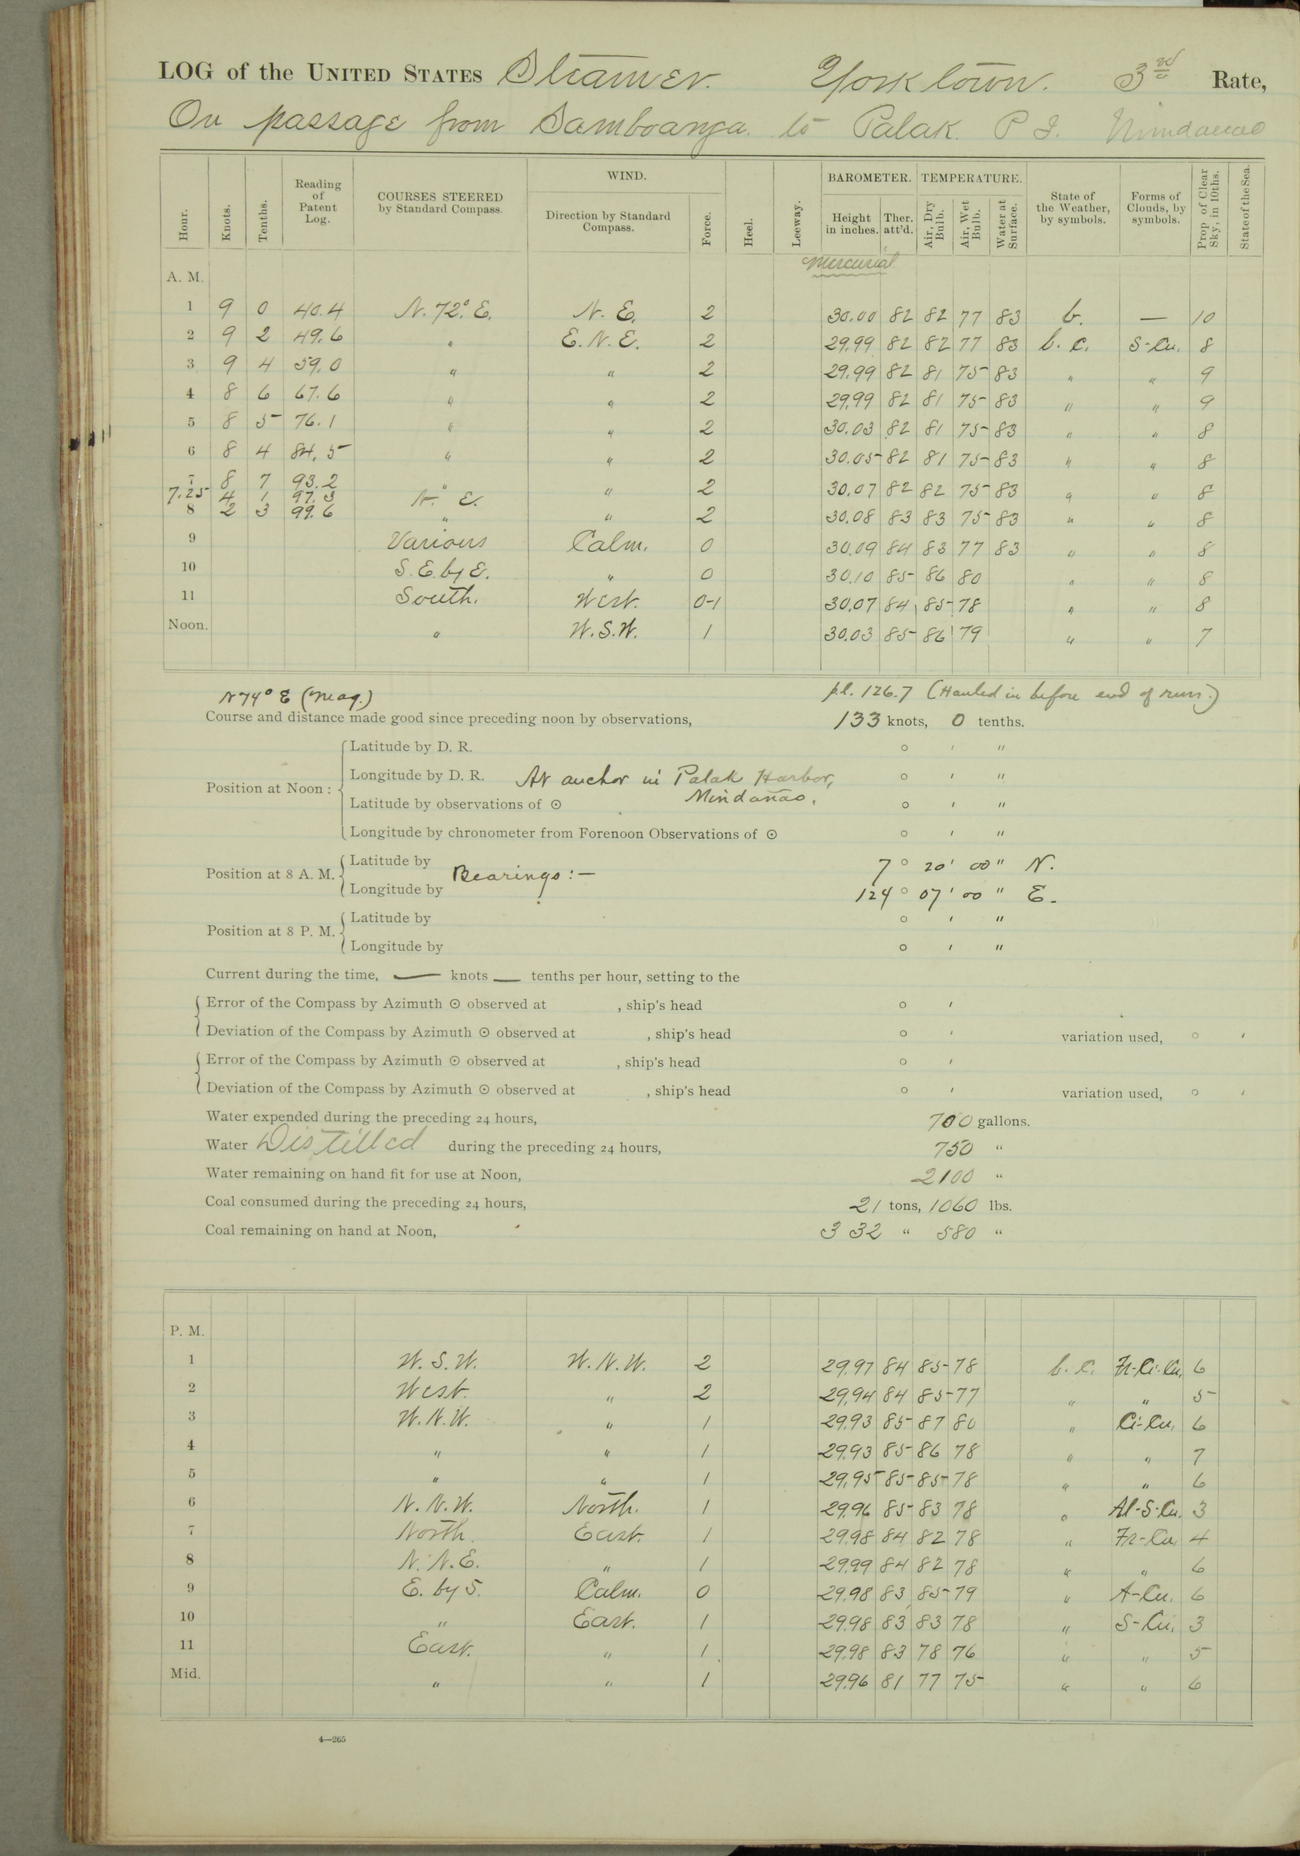 LOG of the UNITED STATES Steamer. Yorktown. 3rd Rate,
On passage from Samboanga to Palak P I. Mindanao
Hour. Knots. Tenths. Reading of Patent Log. COURSES STEERED by Standard Compass. WIND. Direction by Standard Compass. Force. Heel. Leeway. BAROMETER. Height in inches. Ther. att'd. TEMPERATURE. Air, Dry Bulb. Air, Wet Bulb. Water at Surface. State of the Weather, by symbols. Forms of Clouds, by symbols. Prop. of Clear Sky, in 10ths. State of the Sea.
Mercurial
A. M.
1 9 0 40.4 N. 72° E. N. E. 2 30.00 82 82 77 83 b. — 10
2 9 2 49.6 " E. N. E. 2 29.99 82 82 77 83 b. c. S-Cu. 8
3 9 4 59.0 " " 2 29.99 82 81 75 83 " " 9
4 8 6 67.6 " " 2 29.99 82 81 75 83 " " 9
5 8 5 76.1 " " 2 30.03 82 81 75 83 " " 8
6 8 4 84.5 " " 2 30.05 82 81 75 83 " " 8
7 8 7 93.2 " " 2 30.07 82 82 75 83 " " 8
7.25 4 1 97.3 N. E.
8 2 3 99.6 " " 2 30.08 83 83 75 83 " " 8
9 Various Calm. 0 30.09 84 83 77 83 " " 8
10 S. E. by E. " 0 30.10 85 86 80 " " 8
11 South. West. 0-1 30.07 84 85 78 " " 8
Noon. " W. S. W. 1 30.03 85 86 79 " " 7
N 74° E (mag.) p.l. 126.7 (Hauled in before end of run.)
Course and distance made good since preceding noon by observations, 133 knots, 0 tenths.
Position at Noon:
Latitude by D. R. ° ' "
Longitude by D. R. At anchor in Palak Harbor, ° ' "
Latitude by observations of ☉ Mindanao. ° ' "
Longitude by chronometer from Forenoon Observations of ☉ ° ' "
Position at 8 A. M.
Latitude by Bearings:— 7° 20' 00" N.
Longitude by 124° 07' 00" E.
Position at 8 P. M.
Latitude by ° ' "
Longitude by ° ' "
Current during the time, — knots — tenths per hour, setting to the
Error of the Compass by Azimuth ☉ observed at , ship's head ° '
Deviation of the Compass by Azimuth ☉ observed at , ship's head ° ' variation used, ° '
Error of the Compass by Azimuth ☉ observed at , ship's head ° '
Deviation of the Compass by Azimuth ☉ observed at , ship's head ° ' variation used, ° '
Water expended during the preceding 24 hours, 700 gallons.
Water Distilled during the preceding 24 hours, 750 "
Water remaining on hand fit for use at Noon, 2100 "
Coal consumed during the preceding 24 hours, 21 tons, 1060 lbs.
Coal remaining on hand at Noon, 332 " 580 "
P. M.
1 W. S. W. W. N. W. 2 29.97 84 85 78 b. c. Fr-Ci-Cu. 6
2 West. " 2 29.94 84 85 77 " " 5
3 W. N. W. " 1 29.93 85 87 80 " Ci-Cu. 6
4 " " 1 29.93 85 86 78 " " 7
5 " " 1 29.95 85 85 78 " " 6
6 N. N. W. North. 1 29.96 85 83 78 " Al-S-Cu. 3
7 North. East. 1 29.98 84 82 78 " Fr-Cu. 4
8 N. N. E. " 1 29.99 84 82 78 " " 6
9 E. by S. Calm. 0 29.98 83 85 79 " A-Cu. 6
10 " East. 1 29.98 83 83 78 " S-Cu. 3
11 East. " 1 29.98 83 78 76 " " 5
Mid. " " 1 29.96 81 77 75 " " 6
4—265